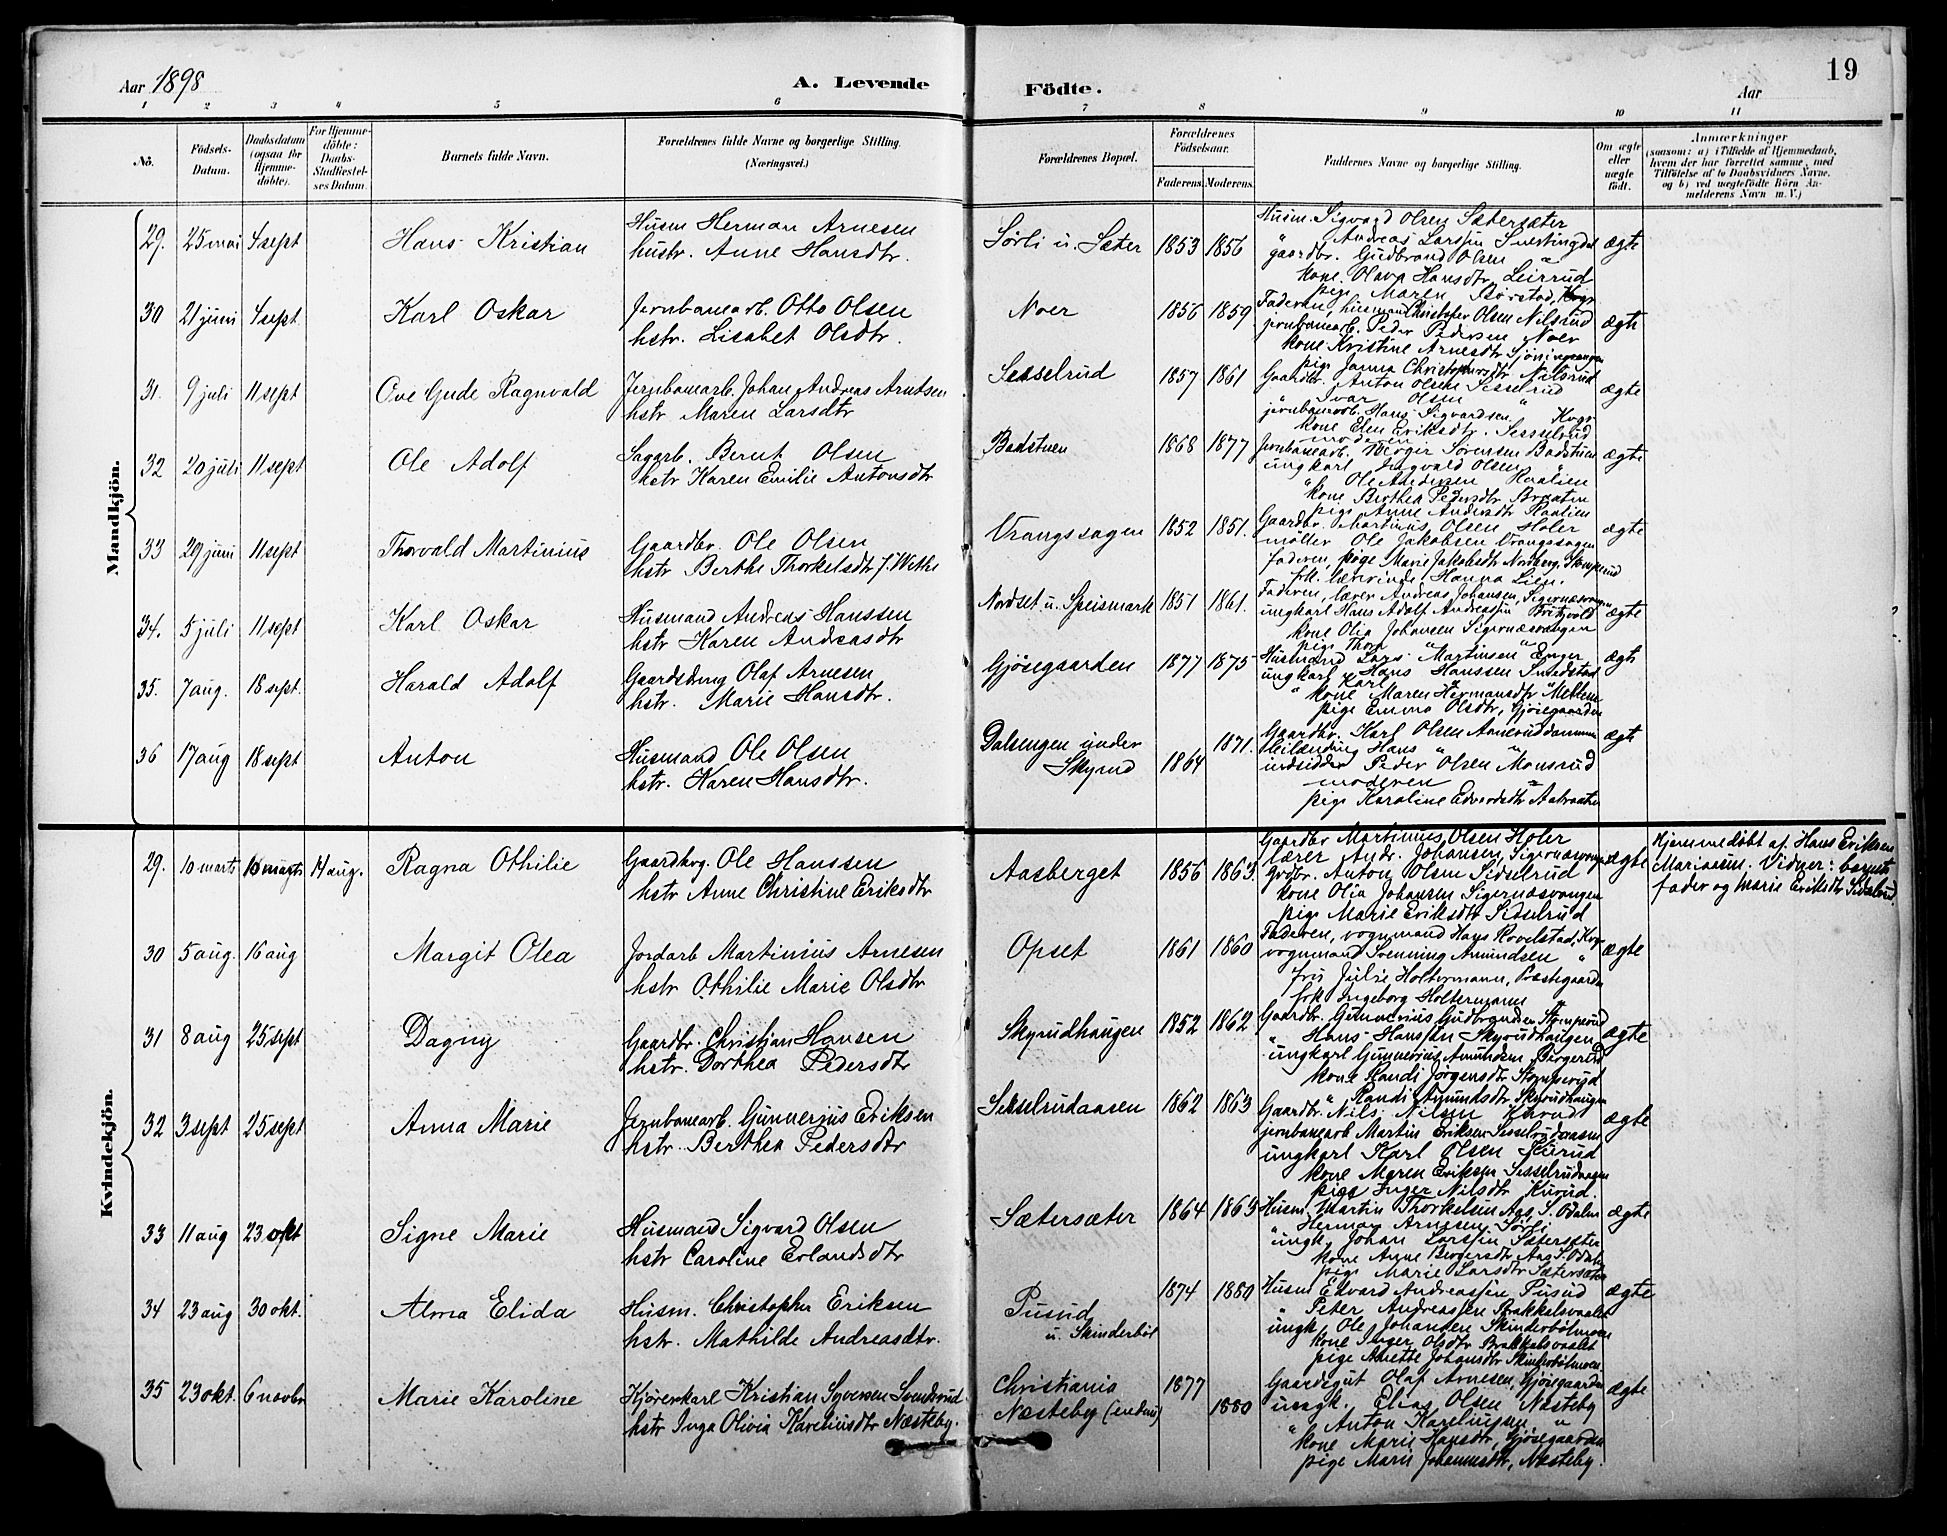 19
Aar 1898
A. Levende
Födte.
Aar
1 2 3 4 5 6 7 8 9 10 11
No.
Födsels-Datum.
Daabsdatum (ogsaa for Hjemme-döbte).
For Hjemme-döbte: Daabs-Stadfæstel-ses Datum.
Barnets fulde Navn.
Forældrenes fulde Navne og borgerlige Stilling. (Næringsvei.)
Forældrenes Bopæl.
Forældrenes Födselsaar.
Faderens. Moderens.
Faddernes Navne og borgerlige Stilling.
Om ægte eller uægte födt.
Anmærkninger
(saasom: a) i Tilfælde af Hjemmedaab,
hvem der har forrettet samme, med
Tilföielse af to Daabsvidners Navne,
og b) ved uægtefödte Börn An-
melderens Navn m. V.)
Mandkjön.
29. 25 mai 4 sept Hans Kristian
Husm Herman Arnesen
hustr. Anne Hansdtr.
Sörli u. Sæter 1853 1856
Husm. Sigvard Olsen Sætersæter
" Andreas Larssen
gaardbr. Gudbrand Olsen "
kone Olava Hansdtr. Leirud
pige Maren
ægte
30 21 juni 4 sept Karl Oskar
Jernbanearb. Otto Olsen
hstr. Lisabet Olsdtr.
Noer 1856 1859.
Faderen, husmand Christofer Olsen Nilsrud
jernbanearb. Peder Pedersen Noer
kone Kristine Arnesdtr
pige Janna Christophersdtr Nilsrud
ægte
31. 9 juli 11 sept Ove Gude Ragnvald
Jernbanearb. Johan Andreas Arntsen
hstr Maren Larsdtr
Sesselrud 1857 1861
Gaardbr. Anton Olsen Sesselrud
" Ivar Olsen "
jernbanearb. Hans Sigvardsen Kvgr
kone Elen Eriksdtr. Sesselrud
moderen
ægte
32 20 juli 11 sept Ole Adolf
Sagarb. Bernt Olsen
hstr Karen Emilie Antonsdtr
Badstuen 1868 1877
Jernbanearb. Sörensen Badstuen
ungkarl Ingvald Olsen "
" Ole Andersen Haalien
kone Berthea Pedersdtr Braaten
pige Anne Andersdtr Haalien
ægte
33 29 juni 11 sept Thorvald Martinius
Gaardbr. Ole Olsen
hstr Berthe Thorkelsdtr
Vrangssagen 1852 1851.
Gaardbr. Martinus Olsen Holer
möller Ole Jakobsen Vrangssagen
faderen, pige Marie Jakobsdtr Norberg, Stomperud
frk. lærerinde Hanna Lien.
ægte
34. 5 juli 11 sept Karl Oskar
Husmand Andreas Hanssen
hstr Karen Andreasdtr
Nordset u. Speismark 1851 1861.
Faderen, lærer Andreas Johansen, Sigernæsvangen
ungkarl Hans Adolf Andreassen
kone Olia Johansen Sigernæsvangen
pige Thora " "
ægte
35. 7 aug. 18 sept. Harald Adolf
Gaardsdreng Olaf Arnesen
hstr. Marie Hansdtr.
Gjösegaarden 1877 1875
Husmand Lars Martinsen Enger
ungkarl Hans Hanssen Smedstad
" Karl " "
kone Maren Hermansdtr
pige Emma Olsdtr, Gjösegaarden
ægte
36 17 aug 18 sept Anton
Husmand Ole Olsen
hstr. Karen Hansdtr.
Dalsengen under Skyrud 1864 1871.
Gaardbr. Karl Olsen
Hans " "
indsidder Peder Olsen Monsrud
moderen
pige Karoline Edvardsdtr Aabraaten
ægte
Kvindekjön.
29. 10 marts 10 marts 14 aug. Ragna Othilie
Gaardbrg. Ole Hanssen
hstr Anne Christine Eriksdtr
Aasberget 1856 1863.
Gaardbr Martinius Olsen Holer
lærer Andr. Johansen, Sigernæsvangen
Grdbr. Anton Olsen Sidselrud
kone Olia Johansen Sigernæsvangen
pige Marie Eriksdtr Sidselrud
ægte
Hjemmedöbt af Hans Eriksen
Mariaasen. Vidner: barnets
fader og Marie Eriksdtr Sidselrud.
30 5 aug. 16 aug Margit Olea
Jordarb Martinius Arnesen
hstr Othilie Marie Olsdtr
Opset 1861 1860
Faderen, vognmand Hans Rovelstad, Kvgr
vognmand Svenning Amundsen "
fru Julie Holtermann, Præstegaarden
frk. Ingeborg Holtermann "
ægte
31 8 aug 25 sept Dagny
Gaardbr. Christian Hansen
hstr. Dorthea Pedersdtr
Skyrudhaugen 1852 1862
Gaardbr. Gunnerius Gudbrandsen Stomperud
" Hans Hanssen Skyrudhaugen
ungkarl Gunnerius Amundsen Birgerud
kone Randi Jörgensdtr Stomperud
" Randi Amundsdtr. Skyrudhaugen
ægte
32 3 sept 25 sept Anna Marie
Jernbanearb. Gunnerius Eriksen
hstr. Berthea Pedersdtr
Sesselrudaasen 1862 1863
Gaardbr. Nils Nilsen Kurud
jernbanearb Martin Eriksen Sesselrudaasen
ungkarl Karl Olsen Kurud
kone Maren Eriksen Sesselrudaasen
pige Inger Nilsdtr Kurud.
ægte
33 11 aug 23 okt Signe Marie
Husmand Sigvard Olsen
hstr Caroline Erlandsdtr
Sætersæter 1864 1863
Husm. Martin Thorkelsen Aas S. Odalen
" Herman Arnesen Sörli
ungk. Johan Larssen Sætersæter
kone Anne Bergersdtr Aas S. Odalen
pige Marie Larsdtr Sætersæter
ægte
34 23 aug 30 okt. Alma Elida
Husm. Christopher Eriksen
hstr. Mathilde Andreasdtr.
Pusud u. Skinderböl 1874 1880
Husm Edvard Andreassen Pusud
" Peter Andreassen Brakkelsvaalet
ungk. Ole Johansen Skinderbölmoen
kone Inger Olsdtr Brakkelsvaalet
pige Anette Johansdtr Skinderbölmoen
ægte
35 23 okt. 6 novbr Marie Karoline
Kjörerkarl Kristian Syversen Svendsrud
hstr Inga Olivia Kareliusdtr Næsteby.
Christiania
Næsteby 1877 1880
Gaardsgut Olaf Arnesen, Gjösegaarden
ungk. Elias Olsen Næsteby
" Anton Kareliussen "
kone Marie Hansdtr, Gjösegaarden
pige Marie Johannesdtr, Næsteby.
ægte